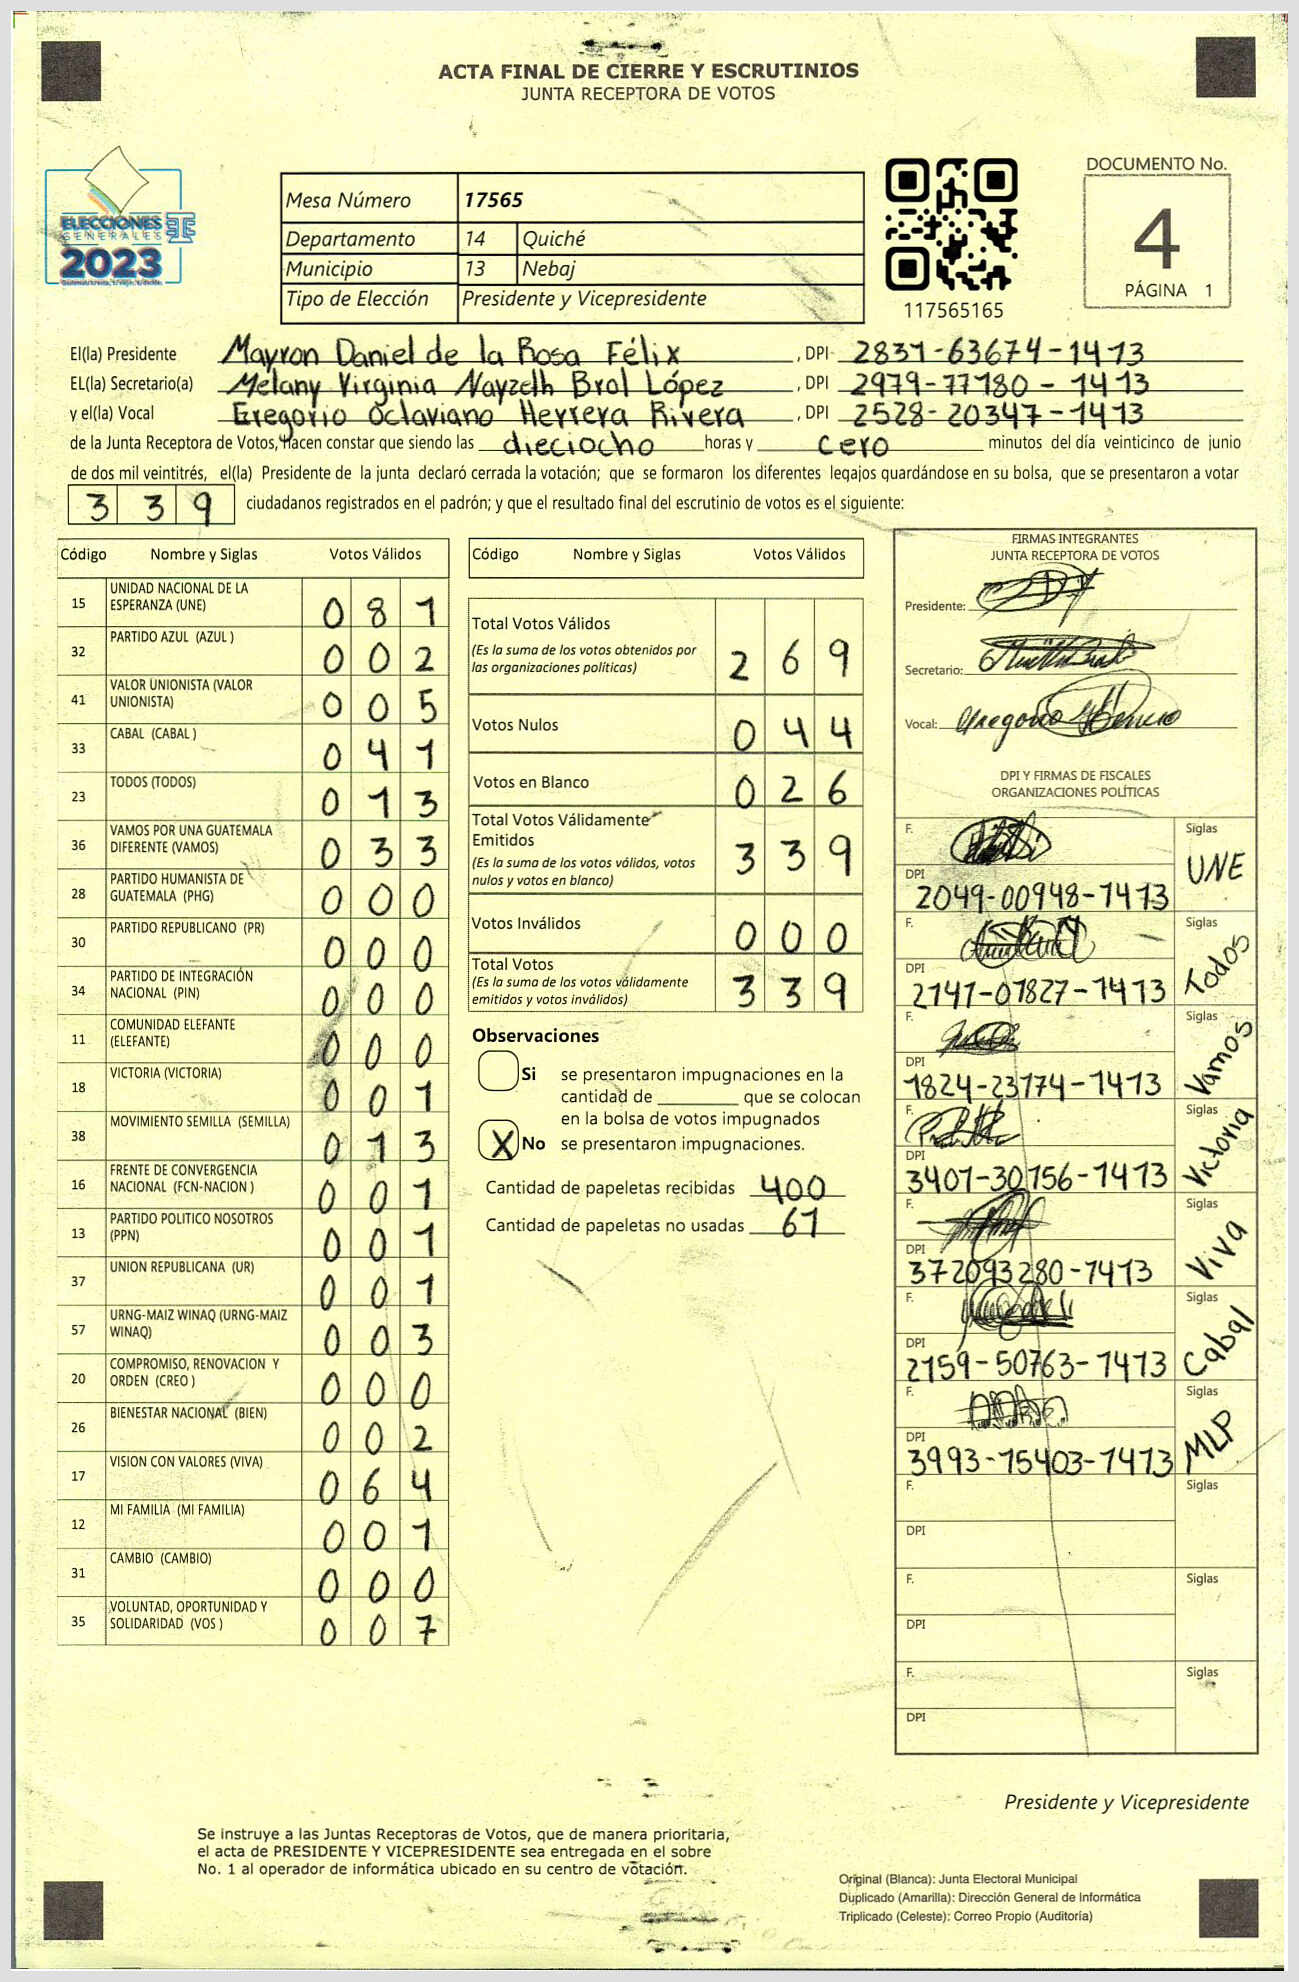 ACTA FINAL DE CIERRE Y ESCRUTINIOS
JUNTA RECEPTORA DE VOTOS
ELECCIONES
GENERALES
2023
Mesa Número 17565
Departamento 14 Quiché
Municipio 13 Nebaj
Tipo de Elección Presidente y Vicepresidente
117565165
DOCUMENTO No.
4
PÁGINA 1
El(la) Presidente Mayron Daniel de la Rosa Félix , DPI 2831-63674-1413
EL(la) Secretario(a) Melany Virginia Nayzeth Bral López , DPI 2979-77180 - 1413
y el(la) Vocal Gregorio Octaviano Herrera Rivera , DPI 2528-20347-1413
de la Junta Receptora de Votos, hacen constar que siendo las dieciocho horas y cero minutos del día veinticinco de junio
de dos mil veintitrés, el(la) Presidente de la junta declaró cerrada la votación; que se formaron los diferentes legajos guardándose en su bolsa, que se presentaron a votar
3 3 9 ciudadanos registrados en el padrón; y que el resultado final del escrutinio de votos es el siguiente:
Código Nombre y Siglas Votos Válidos
15 UNIDAD NACIONAL DE LA
ESPERANZA (UNE) 0 8 1
32 PARTIDO AZUL (AZUL ) 0 0 2
41 VALOR UNIONISTA (VALOR
UNIONISTA) 0 0 5
33 CABAL (CABAL ) 0 4 1
23 TODOS (TODOS) 0 1 3
36 VAMOS POR UNA GUATEMALA
DIFERENTE (VAMOS) 0 3 3
28 PARTIDO HUMANISTA DE
GUATEMALA (PHG) 0 0 0
30 PARTIDO REPUBLICANO (PR) 0 0 0
34 PARTIDO DE INTEGRACIÓN
NACIONAL (PIN) 0 0 0
11 COMUNIDAD ELEFANTE
(ELEFANTE) 0 0 0
18 VICTORIA (VICTORIA) 0 0 1
38 MOVIMIENTO SEMILLA (SEMILLA) 0 1 3
16 FRENTE DE CONVERGENCIA
NACIONAL (FCN-NACION ) 0 0 1
13 PARTIDO POLITICO NOSOTROS
(PPN) 0 0 1
37 UNION REPUBLICANA (UR) 0 0 1
57 URNG-MAIZ WINAQ (URNG-MAIZ
WINAQ) 0 0 3
20 COMPROMISO, RENOVACION Y
ORDEN (CREO ) 0 0 0
26 BIENESTAR NACIONAL (BIEN) 0 0 2
17 VISION CON VALORES (VIVA) 0 6 4
12 MI FAMILIA (MI FAMILIA) 0 0 1
31 CAMBIO (CAMBIO) 0 0 0
35 VOLUNTAD, OPORTUNIDAD Y
SOLIDARIDAD (VOS ) 0 0 7
Código Nombre y Siglas Votos Válidos
Total Votos Válidos
(Es la suma de los votos obtenidos por
las organizaciones políticas) 2 6 9
Votos Nulos 0 4 4
Votos en Blanco 0 2 6
Total Votos Válidamente
Emitidos
(Es la suma de los votos válidos, votos
nulos y votos en blanco) 3 3 9
Votos Inválidos 0 0 0
Total Votos
(Es la suma de los votos válidamente
emitidos y votos inválidos) 3 3 9
Observaciones
Si se presentaron impugnaciones en la
cantidad de ________ que se colocan
en la bolsa de votos impugnados
X No se presentaron impugnaciones.
Cantidad de papeletas recibidas 400
Cantidad de papeletas no usadas 61
FIRMAS INTEGRANTES
JUNTA RECEPTORA DE VOTOS
Presidente:
Secretario:
Vocal: Gregorio
DPI Y FIRMAS DE FISCALES
ORGANIZACIONES POLÍTICAS
F. Siglas
DPI UNE
2049-00948-1413
F. Siglas
DPI Todos
2141-01827-1413
F. Siglas
DPI Vamos
1824-23174-1413
F. Siglas
DPI Victoria
3401-30156-1413
F. Siglas
DPI Viva
372093280-1413
F. Siglas
DPI Cabal
2159-50763-1413
F. Siglas
DPI MLP
3993-15403-1413
F. Siglas
DPI
F. Siglas
DPI
F. Siglas
DPI
Presidente y Vicepresidente
Se instruye a las Juntas Receptoras de Votos, que de manera prioritaria,
el acta de PRESIDENTE Y VICEPRESIDENTE sea entregada en el sobre
No. 1 al operador de informática ubicado en su centro de votación.
Original (Blanca): Junta Electoral Municipal
Duplicado (Amarilla): Dirección General de Informática
Triplicado (Celeste): Correo Propio (Auditoría)